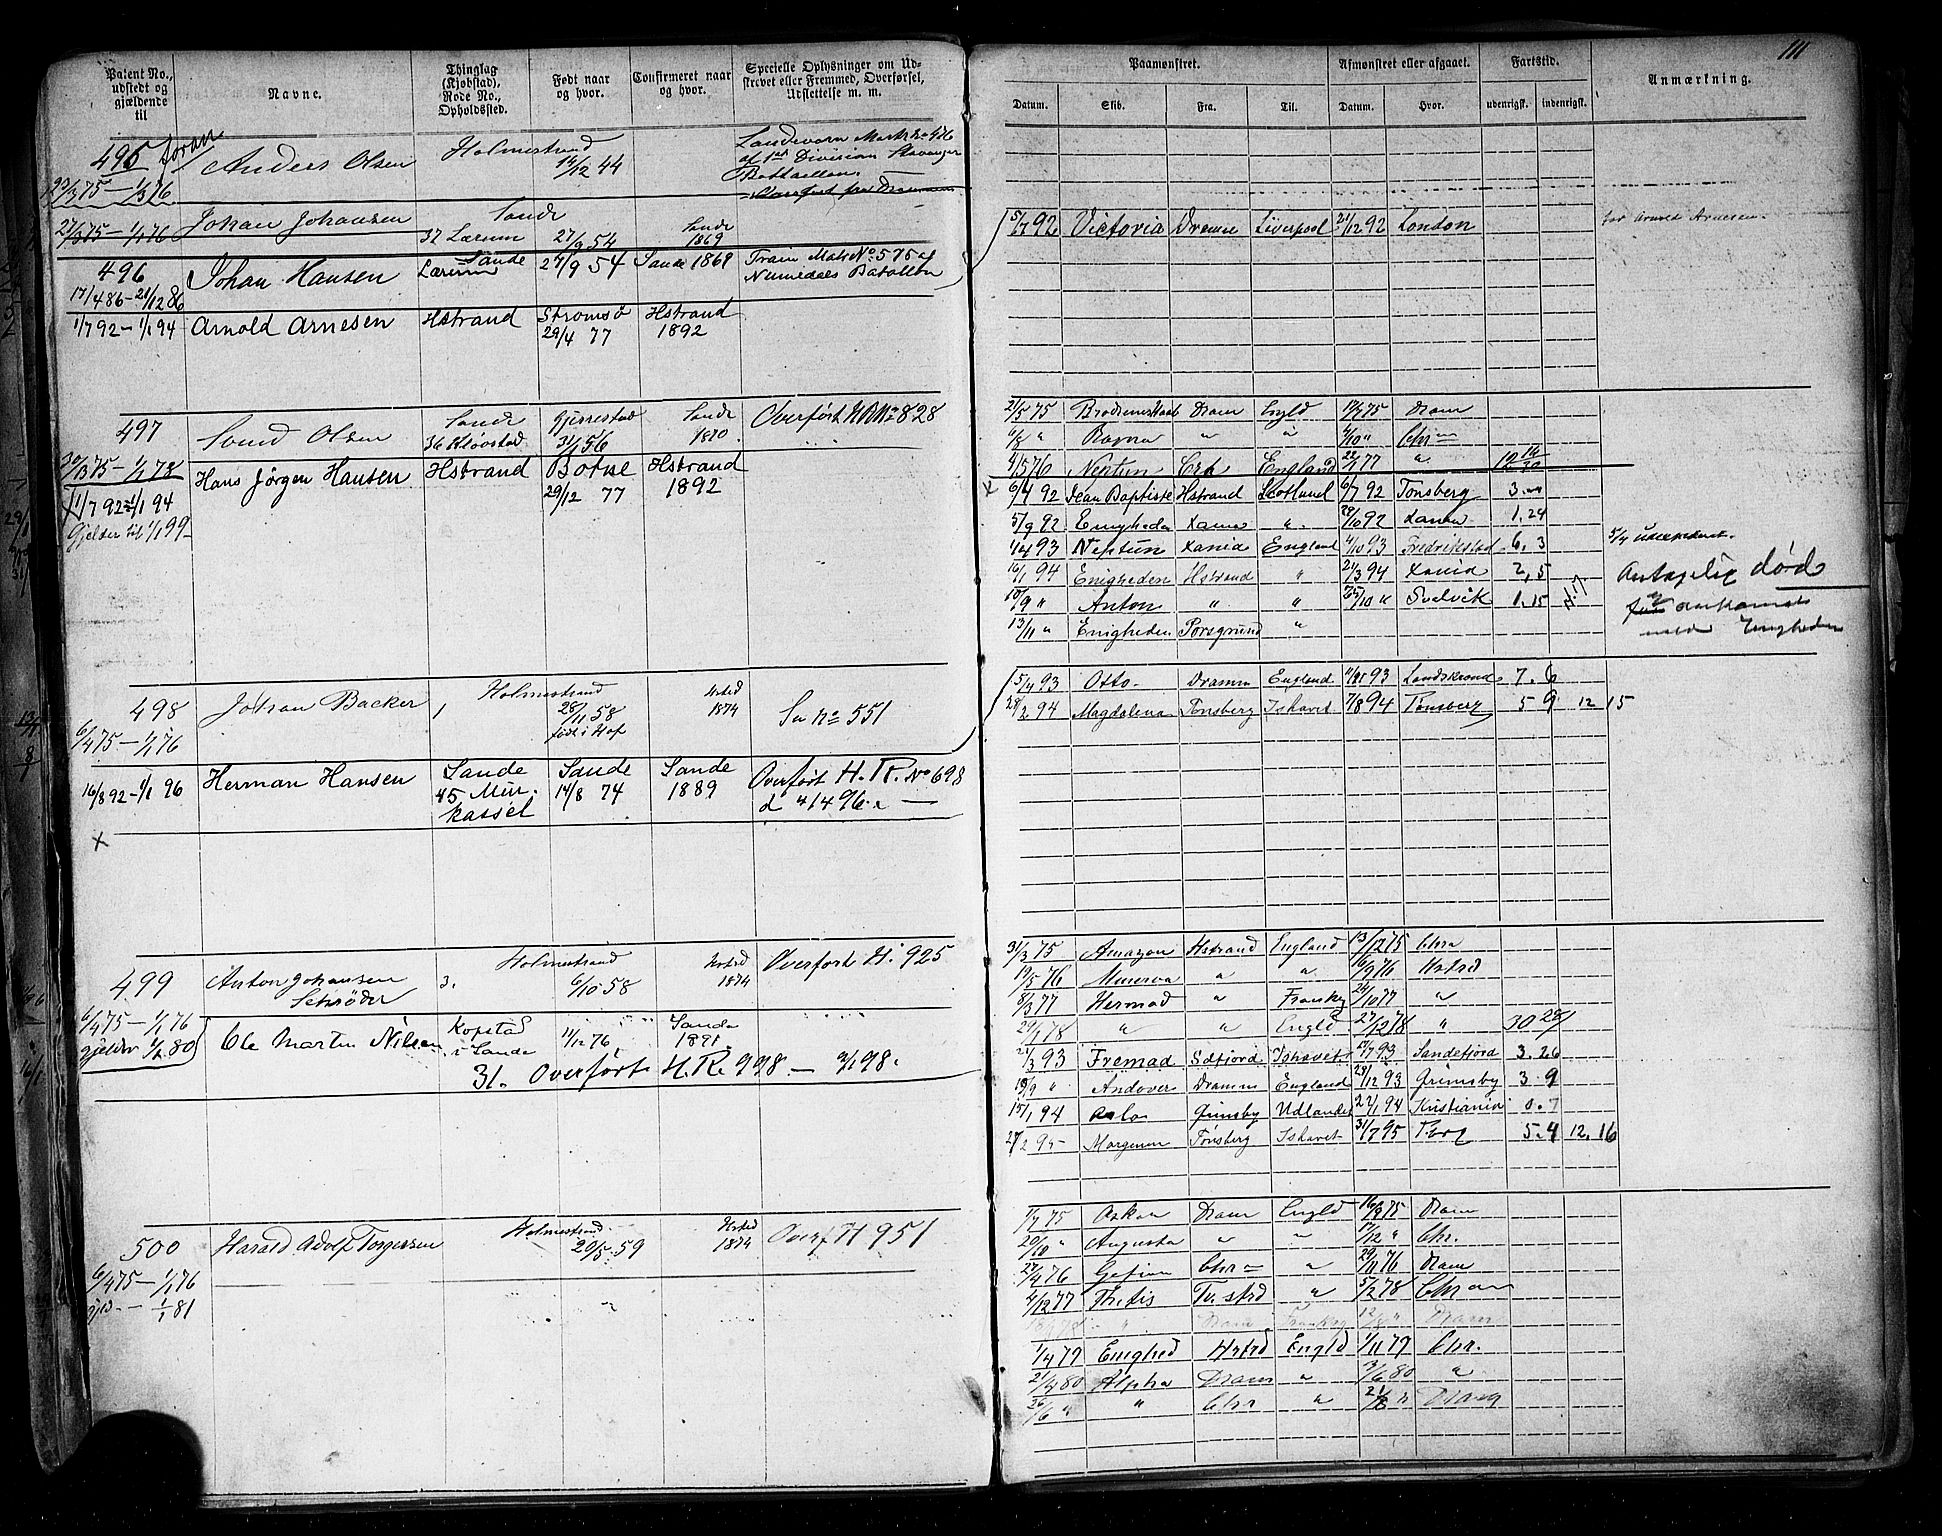 111
Patent No., udstedt og gjældende til
Navne.
Thinglag (Kjøbstad), Rode No., Opholdssted.
Født naar og hvor.
Confirmeret naar og hvor.
Specielle Oplysninger om Udskrevet eller Fremmed, Overførsel, Udslettelse m. m.
Paamønstret.
Afmønstret eller afgaaet.
Fartstid.
Anmærkning.
Datum. Skib. Fra. Til. Datum. Hvor. udenrigsk. indenrigsk.
495 foran Anders Olsen Holmestrand 14/12 44 Landeværn Matr № 476
af 1ste Division Stavanger
Battaillon.
Overført fra Drammen
Johan Johansen Sande
37 Lærum 27/9 54 Sande 1869
496 Johan Hansen Sande Lærum 27/9 54 Sande 1869 Train Mat. No. 575 af
Numedals Batallon
17/4 86 – 21/12 86
1/7 92 – 1/1 94 Arnold Arnesen Hstrand Strømsø Hstrand
29/4 77 1892
5/7 92 Victoria Dramm Liverpool 21/12 92 London for Arnold Arnesen.
497 Olsen Sande 31/1 56 Sande 1870 Overført H R № 828
30/3 75 – 1/1 78 Hans Jørgen Hansen Hstrand Botne Hstrand
X 1/7 92 – 1/1 94 29/12 77 1892
Gjelder til 1/1 99
21/5 75 Dram Engld 75 Dram
6/8 " Ragna " " 4/10 " Chr
4/5 76 Neptun Cra England 22/1 77 "
6/4 92 Jean Baptiste Hstrand Scotland 6/7 92 Tønsberg 3
5/9 92 Enigheden " 29/10 92 1. 24
4/4 93 Neptun England 4/10 93 Fredrikstad 6. 3
16/1 94 Enigheden Hstrand " 21/3 94 2, 5
10/9 " Anton " " 25/10 " Svelvik 1. 15
13/11 " Enigheden Porsgrund "
Antagelig død
Enigheden
498 Johan Backer Holmestrand Hstrd
28/11 58 1874 Se № 551
født i Hof
6/4 75 – 1/1 76
16/8 92 – 1/1 96 Herman Hansen Sande Sande Sande Overført H. R. No 698
45 14/8 74 1889 d 4/1 96.
X
5/4 93 Otto Dramm England 93 Landskrona 7. 6
28/2 94 Magdalena Tønsberg Ishavet 7/8 94 Tønsberg 5 9 12 15
499 Anton Johansen 3. Holmestrand Hstrd Overført H. 925
Schrøder 6/10 58 1874
6/4 75 – 1/1 76
gjelder 1/1 80 Ole Martin Nilsen Kopstad 11/12 76 Sande
i Sande 1891
31. Overført H. R. 998 – 3/1 98.
31/3 75 Amazon Hstrand England 13/12 75 Chra
19/5 76 Minerva " " 6/9 76 Hstrd
8/3 77 Hermod " Frankrg 24/10 77 "
29/1 78 " " Engld 27/12 78 " 30 28
21/3 93 Fremad Sdfjord Ishavet 17/7 93 Sandefjord 3. 26
19/9 " Andover Dramm England 28/12 93 Grimsby 3 9
15/1 94 Oslo Grimsby Udlandet 22/1 94 Kristiania 0. 7
27/2 95 Morgenen Tønsberg Ishavet 31/7 95 Tbrg 5. 4 12. 16
500 Harald Adolf Torgersen Holmestrand Hstrd Overf H 951
20/5 59 1874
6/4 75 – 1/1 76
1/1 81
1/7 75 Dram Engld 16/9 75 Dram
20/10 " Augusta " " 17/12 " Chr.
27/4 76 Gefion Chr " 29/11 76 Dram
4/12 77 Thetis " 5/2 78
" Dram Frankrg " Dram
1/4 79 Enighed Hstrd Engld 1/11 79 Chr.
21/4 80 Alpha Dram " 3/6 80 "
26/6 " " Chr " "